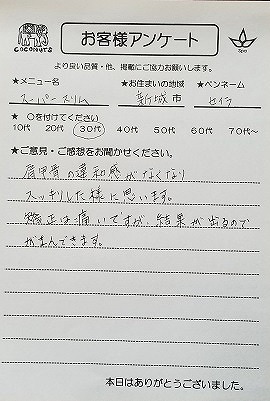 COCONUTS
お客様アンケート
Spa
より良い品質・他、掲載にご協力お願いします。
★メニュー名 ★お住まいの地域 ★ペンネーム
スーパースリム 新城市 セイラ
★ 〇を付けてください
10代 20代 30代 40代 50代 60代 70代～
★ご意見・ご感想をお聞かせください。
肩甲骨の違和感がなくなり
スッキリした様に思います。
矯正は痛いですが、結果が出るので
がまんできます。
本日はありがとうございました。